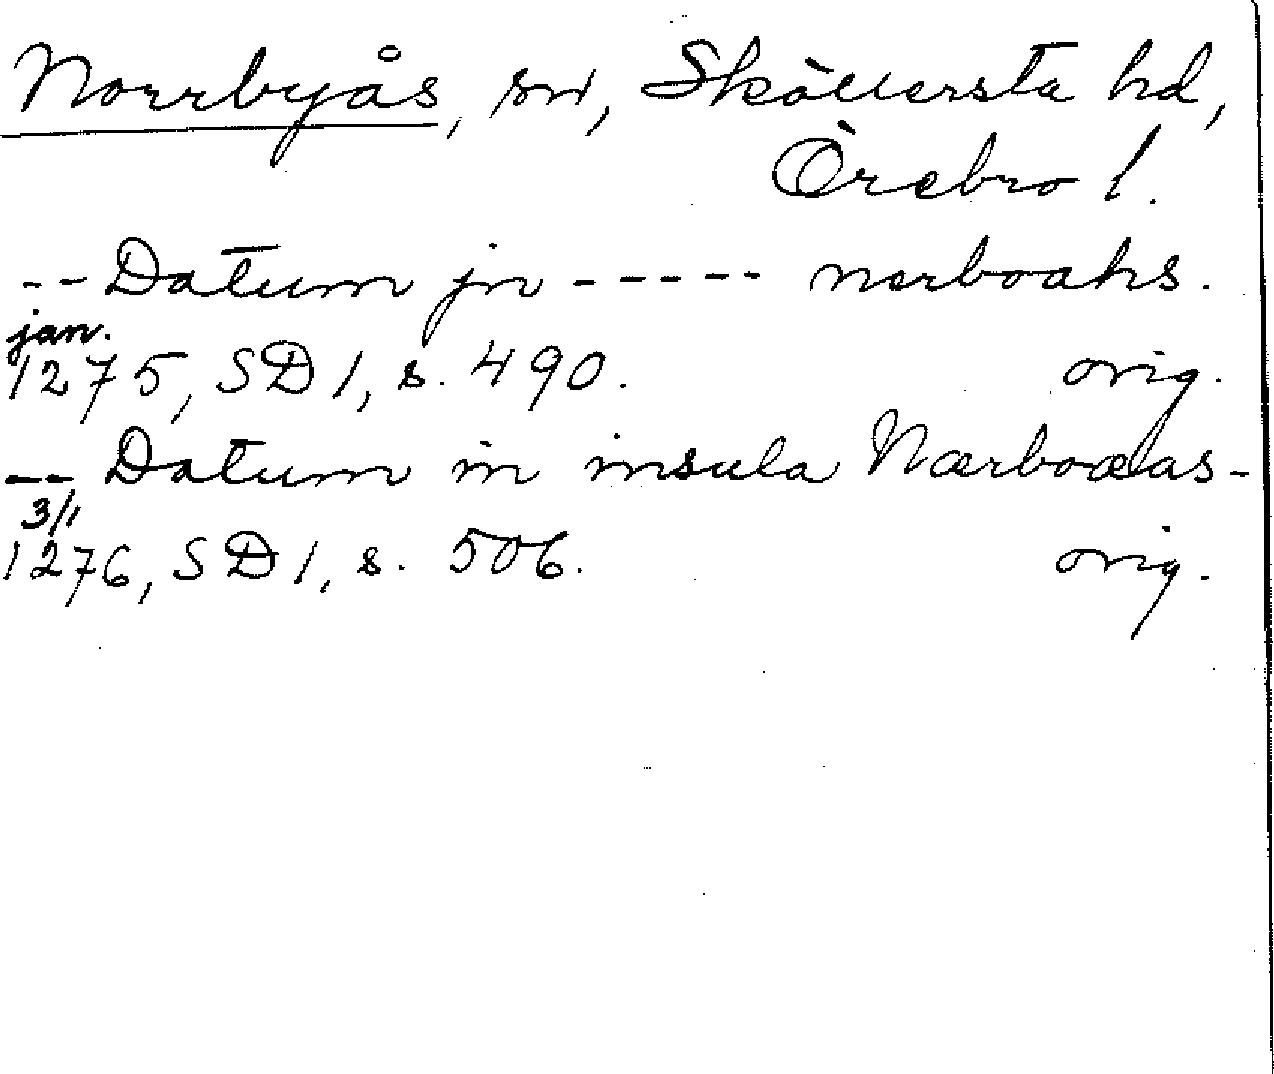 Norrbyås, sn, Sköllersta hd,
Örebro l.
-- Datum jn ----- nerboahs.
jan.
1275, SD 1, s. 490. orig.
-- Datum in insula Nærboæas-
3/1
1276, SD 1, s. 506. orig.